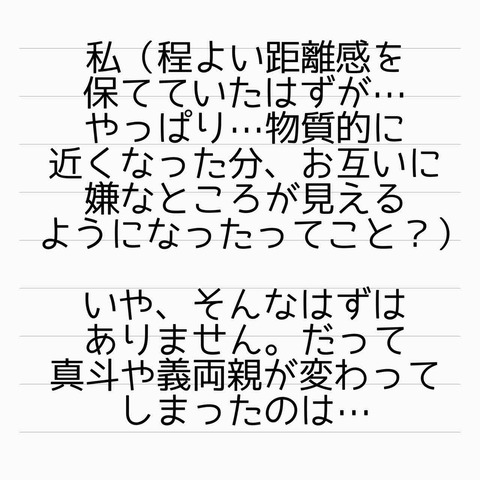 私（程よい距離感を
保てていたはずが…
やっぱり…物質的に
近くなった分、お互いに
嫌なところが見える
ようになったってこと？）
いや、そんなはずは
ありません。だって
真斗や義両親が変わって
しまったのは…